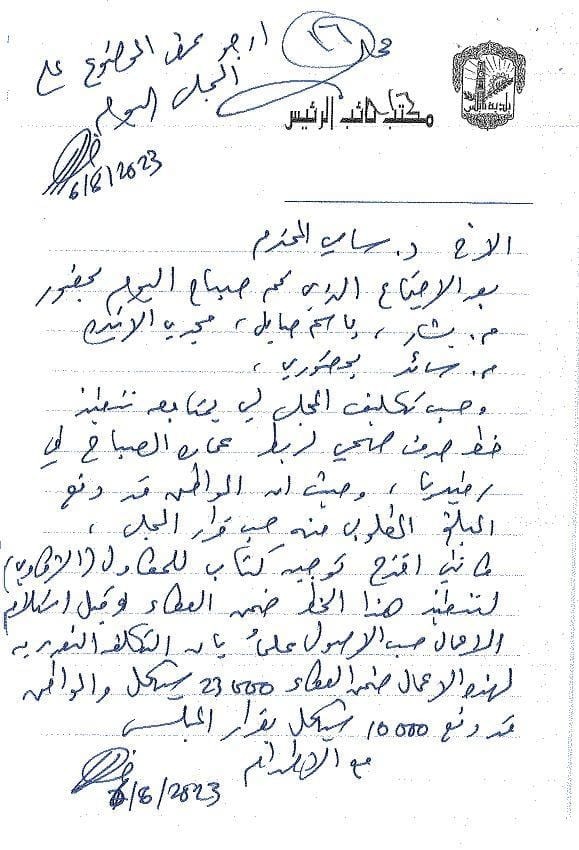 محلي ٢٦ ارجو عرض الموضوع على
المجلس اليوم
6/8/2023
بلدية نابلس
مكتب نائب الرئيس
الاخ د. سامي المحترم
بعد الاجتماع الذي تم صباح اليوم بحضور
م. بشار ، باسم صايل ،
م. سائد بحضوري ،
وحسب تكليف المجلس لي بمتابعة تنفيذ
خط صرف صحي لربط عمارة الصباح في
رفيديا ، وحيث ان المواطن قد دفع
المبلغ المطلوب منه حسب قرار المجلس ،
فانني اقترح توجيه كتاب للمقاول
لتنفيذ هذا الخط ضمن العطاء وقبل استلام
الاعمال حسب الاصول علما بان التكلفة التقديرية
لهذه الاعمال ضمن العطاء 23000 شيكل والمواطن
قد دفع 10000 شيكل بقرار المجلس
مع الاحترام
6/8/2023